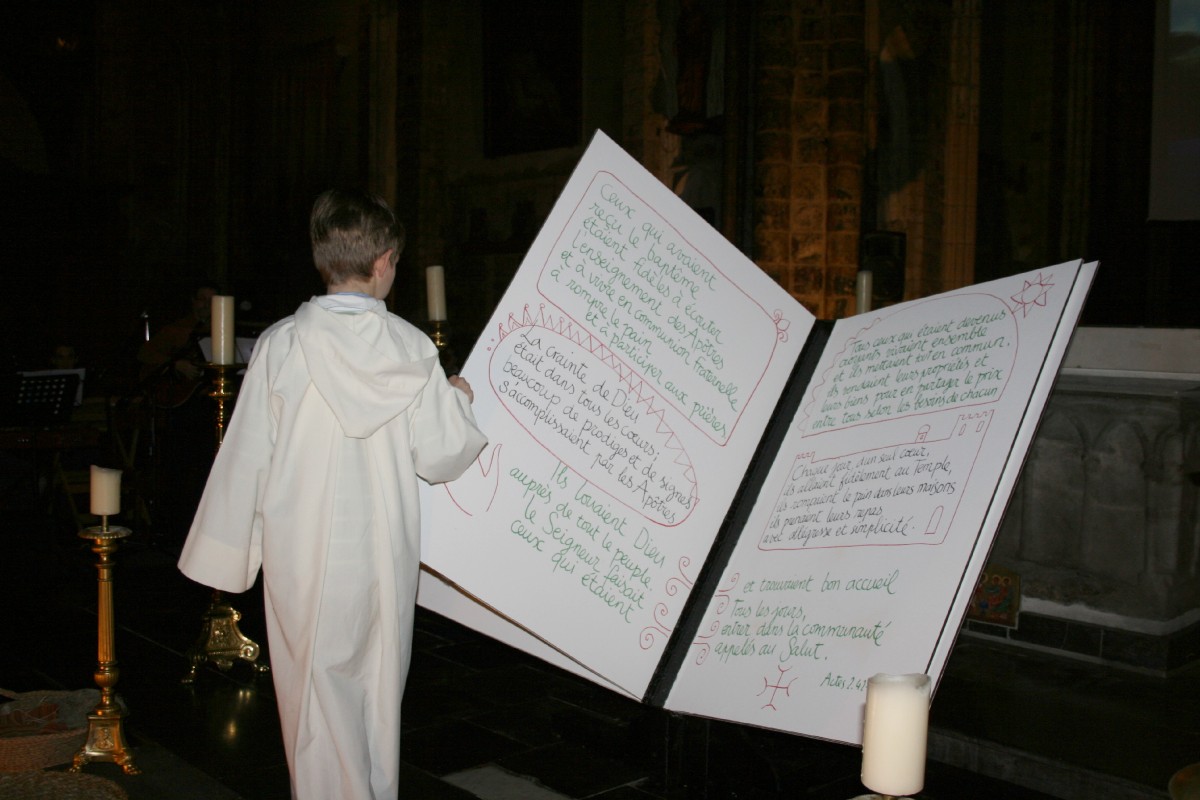 Ceux qui avaient
reçu le baptême
étaient fidèles à écouter
l'enseignement des Apôtres
et à vivre en communion fraternelle
à rompre le pain
et à participer aux prières
La crainte de Dieu
était dans tous les cœurs;
beaucoup de prodiges et de signes
s'accomplissaient par les Apôtres
Ils louaient Dieu
auprès de tout le peuple.
le Seigneur faisait
ceux qui étaient
Tous ceux qui étaient devenus
croyants vivaient ensemble
et ils mettaient tout en commun;
ils vendaient leurs propriétés et
leurs biens pour en partager le prix
entre tous selon les besoins de chacun
Chaque jour, d'un seul cœur,
ils allaient fidèlement au Temple,
ils rompaient le pain dans leurs maisons
ils prenaient leurs repas
avec allégresse et simplicité.
et trouvaient bon accueil
Tous les jours,
entrer dans la communauté
appelés au Salut.
Actes 2.4